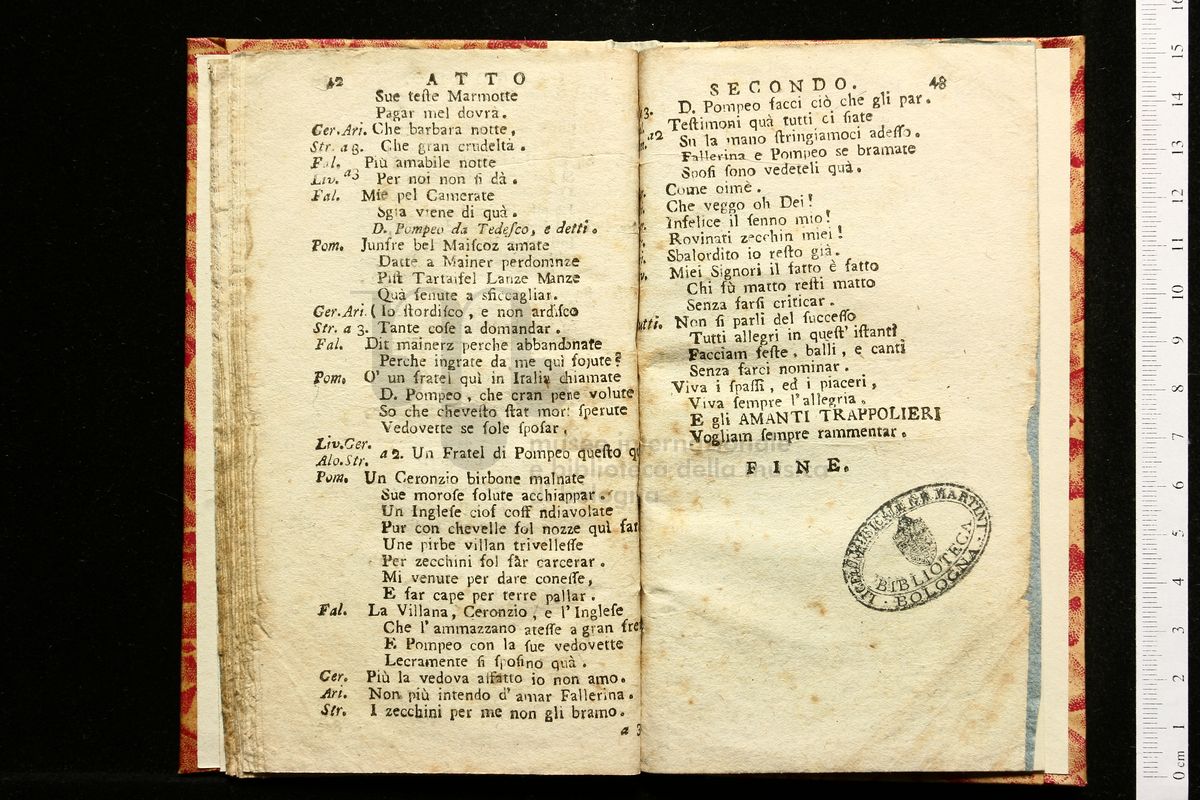 42 ATTO
Sue teſte Marmotte
Pagar mel dovrà.
Cer. Ari. Che barbara notte,
Str. a 3. Che gran crudeltà.
Fal. Più amabile notte
Liv. a3 Per noi non ſi dà.
Fal. Mie pel Camerate
Sgia viene di quà.
D. Pompeo da Tedeſco, e detti.
Pom. Junfre bel Maiſcoz amate
Datte a Mainer perdonnze
Piſt Tartaifel Lanze Manze
Quà ſenute a sficcagliar.
Ger. Ari. (Io ſtordiſco, e non ardiſco
Str. a 3. Tante coſe a domandar.
Fal. Dit mainerz perche abbandonate
Perche ingrate da me quì ſojute?
Pom. O' un fratel quì in Italia chiamate
D. Pompeo, che cran pene volute
So che cheveſto ſtat mort ſperute
Vedovette ſe ſole ſpoſar,
Liv. Ger.
Alo. Str. a 2. Un Fratel di Pompeo queſto
Pom. Un Ceronzio birbone malnate
Sue moroſe ſolute acchiappar.
Un Ingleſe ciof coff ndiavolate
Pur con chevelle ſol nozze quì far
Une pirbe villan trivelleſſe
Per zecchini ſol fâr carcerar.
Mi venute per dare coneſſe,
E far cape per terre pallar.
Fal. La Villana, Ceronzio, e l'Ingleſe
Che l'ammazzano ateſſe a gran
E Pompeo con la ſue vedovette
Lecramente ſi ſpoſino quà.
Cer. Più la vedova affatto io non amo.
Ari. Non più intendo d'amar Fallerina.
Str. I zecchini per me non gli bramo.
a 3
SECONDO. 43
3. D. Pompeo facci ciò che gli par.
Teſtimoni quà tutti ci ſiate
a2 Su la mano ſtringiamoci adeſſo.
Fallerina e Pompeo ſe bramate
Spoſi ſono vedeteli quà.
Come oimè.
Che veggo oh Dei!
Infelice il ſenno mio!
Rovinati zecchin miei!
Sbalordito io reſto già.
Miei Signori il fatto è fatto
Chi fù matto reſti matto
Senza farſi criticar.
utti. Non ſi parli del ſucceſſo
Tutti allegri in queſt' iſtanti
Facciam feſte, balli, e canti
Senza farci nominar.
Viva i ſpaſſi, ed i piaceri,
Viva ſempre l'allegria.
E gli AMANTI TRAPPOLIERI
Vogliam ſempre rammentar.
FINE.
LICEO MUSICALE G.B. MARTINI
BIBLIOTECA
BOLOGNA
museo internazionale
e biblioteca della musica
bologna
0 cm 1 2 3 4 5 6 7 8 9 10 11 12 13 14 15 16